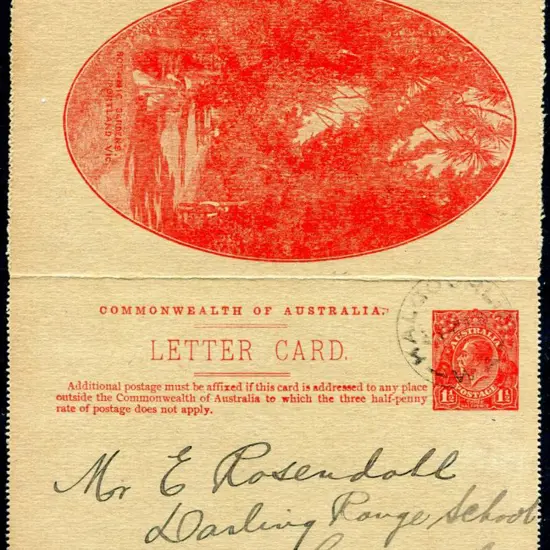 BOTANIC GARDENS,
PORTLAND, VIC.
COMMONWEALTH OF AUSTRALIA.
LETTER CARD.
AUSTRALIA
POSTAGE
1½ 1½
Additional postage must be affixed if this card is addressed to any place
outside the Commonwealth of Australia to which the three half-penny
rate of postage does not apply.
Mr E Rosendahl
Darling Range School